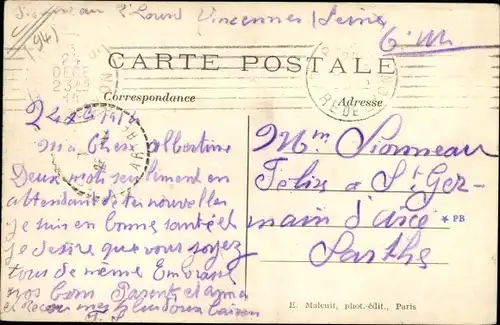 Vincennes Seine
(94)
CARTE POSTALE
Correspondance
Adresse
Ma Chere Albertine
Deux mots seulement en
attendant de tes nouvelles
je suis en bonne santé et
je desire que vous soyez
tous de même Embrasse
nos bons Parents et ama
et recois mes plus doux baisers
Mm Sionneau
Felix a St Ger-
main d'arcé
Sarthe
* PB
E. Malcuit, phot.-édit., Paris